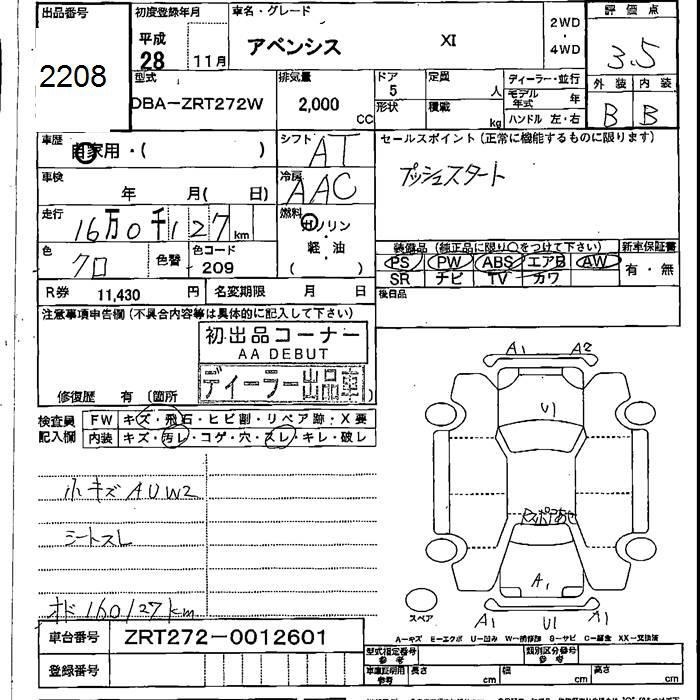 出品番号
2208
初度登録年月
平成
28
11月
車名・グレード
アベンシス XI
2WD
・
4WD
評価点
3.5
型式
DBA-ZRT272W
排気量
2,000
CC
ドア
5
形状
定員
人
積載
kg
ディーラー・並行
モデル
年式
年
ハンドル 左・右
外装 内装
B B
車歴
自家用・( )
シフト
AT
セールスポイント(正常に機能するものに限ります)
プッシュスタート
車検
年 月( 日)
冷房
AAC
走行
16万0千127km
燃料
ガソリン
軽・油
( )
色
クロ
色替
色コード
209
装備品(純正品に限り○をつけて下さい)
PS PW ABS エアB AW
SR ナビ TV カワ
新車保証書
有・無
R券 11,430 円
名変期限 月 日
後日品
注意事項申告欄(不具合内容等は具体的に記入して下さい)
初出品コーナー
AA DEBUT
ディーラー出品車
修復歴 有 (箇所 )
検査員
記入欄
FW キズ・飛石・ヒビ割・リペア跡・X要
内装 キズ・汚レ・コゲ・穴・スレ・キレ・破レ
小キズAUW2
シートスレ
オド160127km
A1 A2
U1
A1
スペア
U1 A1
A-キズ E-エクボ U-凹み W-補修跡 S-サビ C-腐食 XX-交換済
車台番号 ZRT272-0012601
登録番号
型式指定番号
参考
類別区分番号
参考
車庫証明用
参考
長さ cm 幅 cm 高さ cm